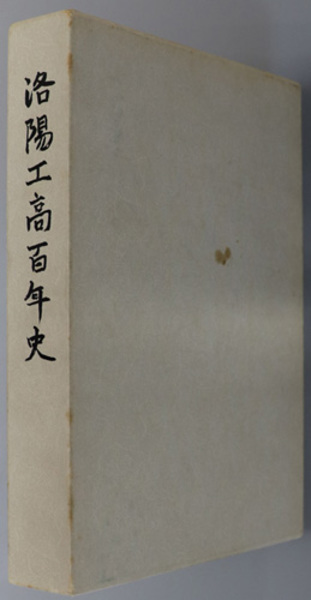 洛陽工高百年史